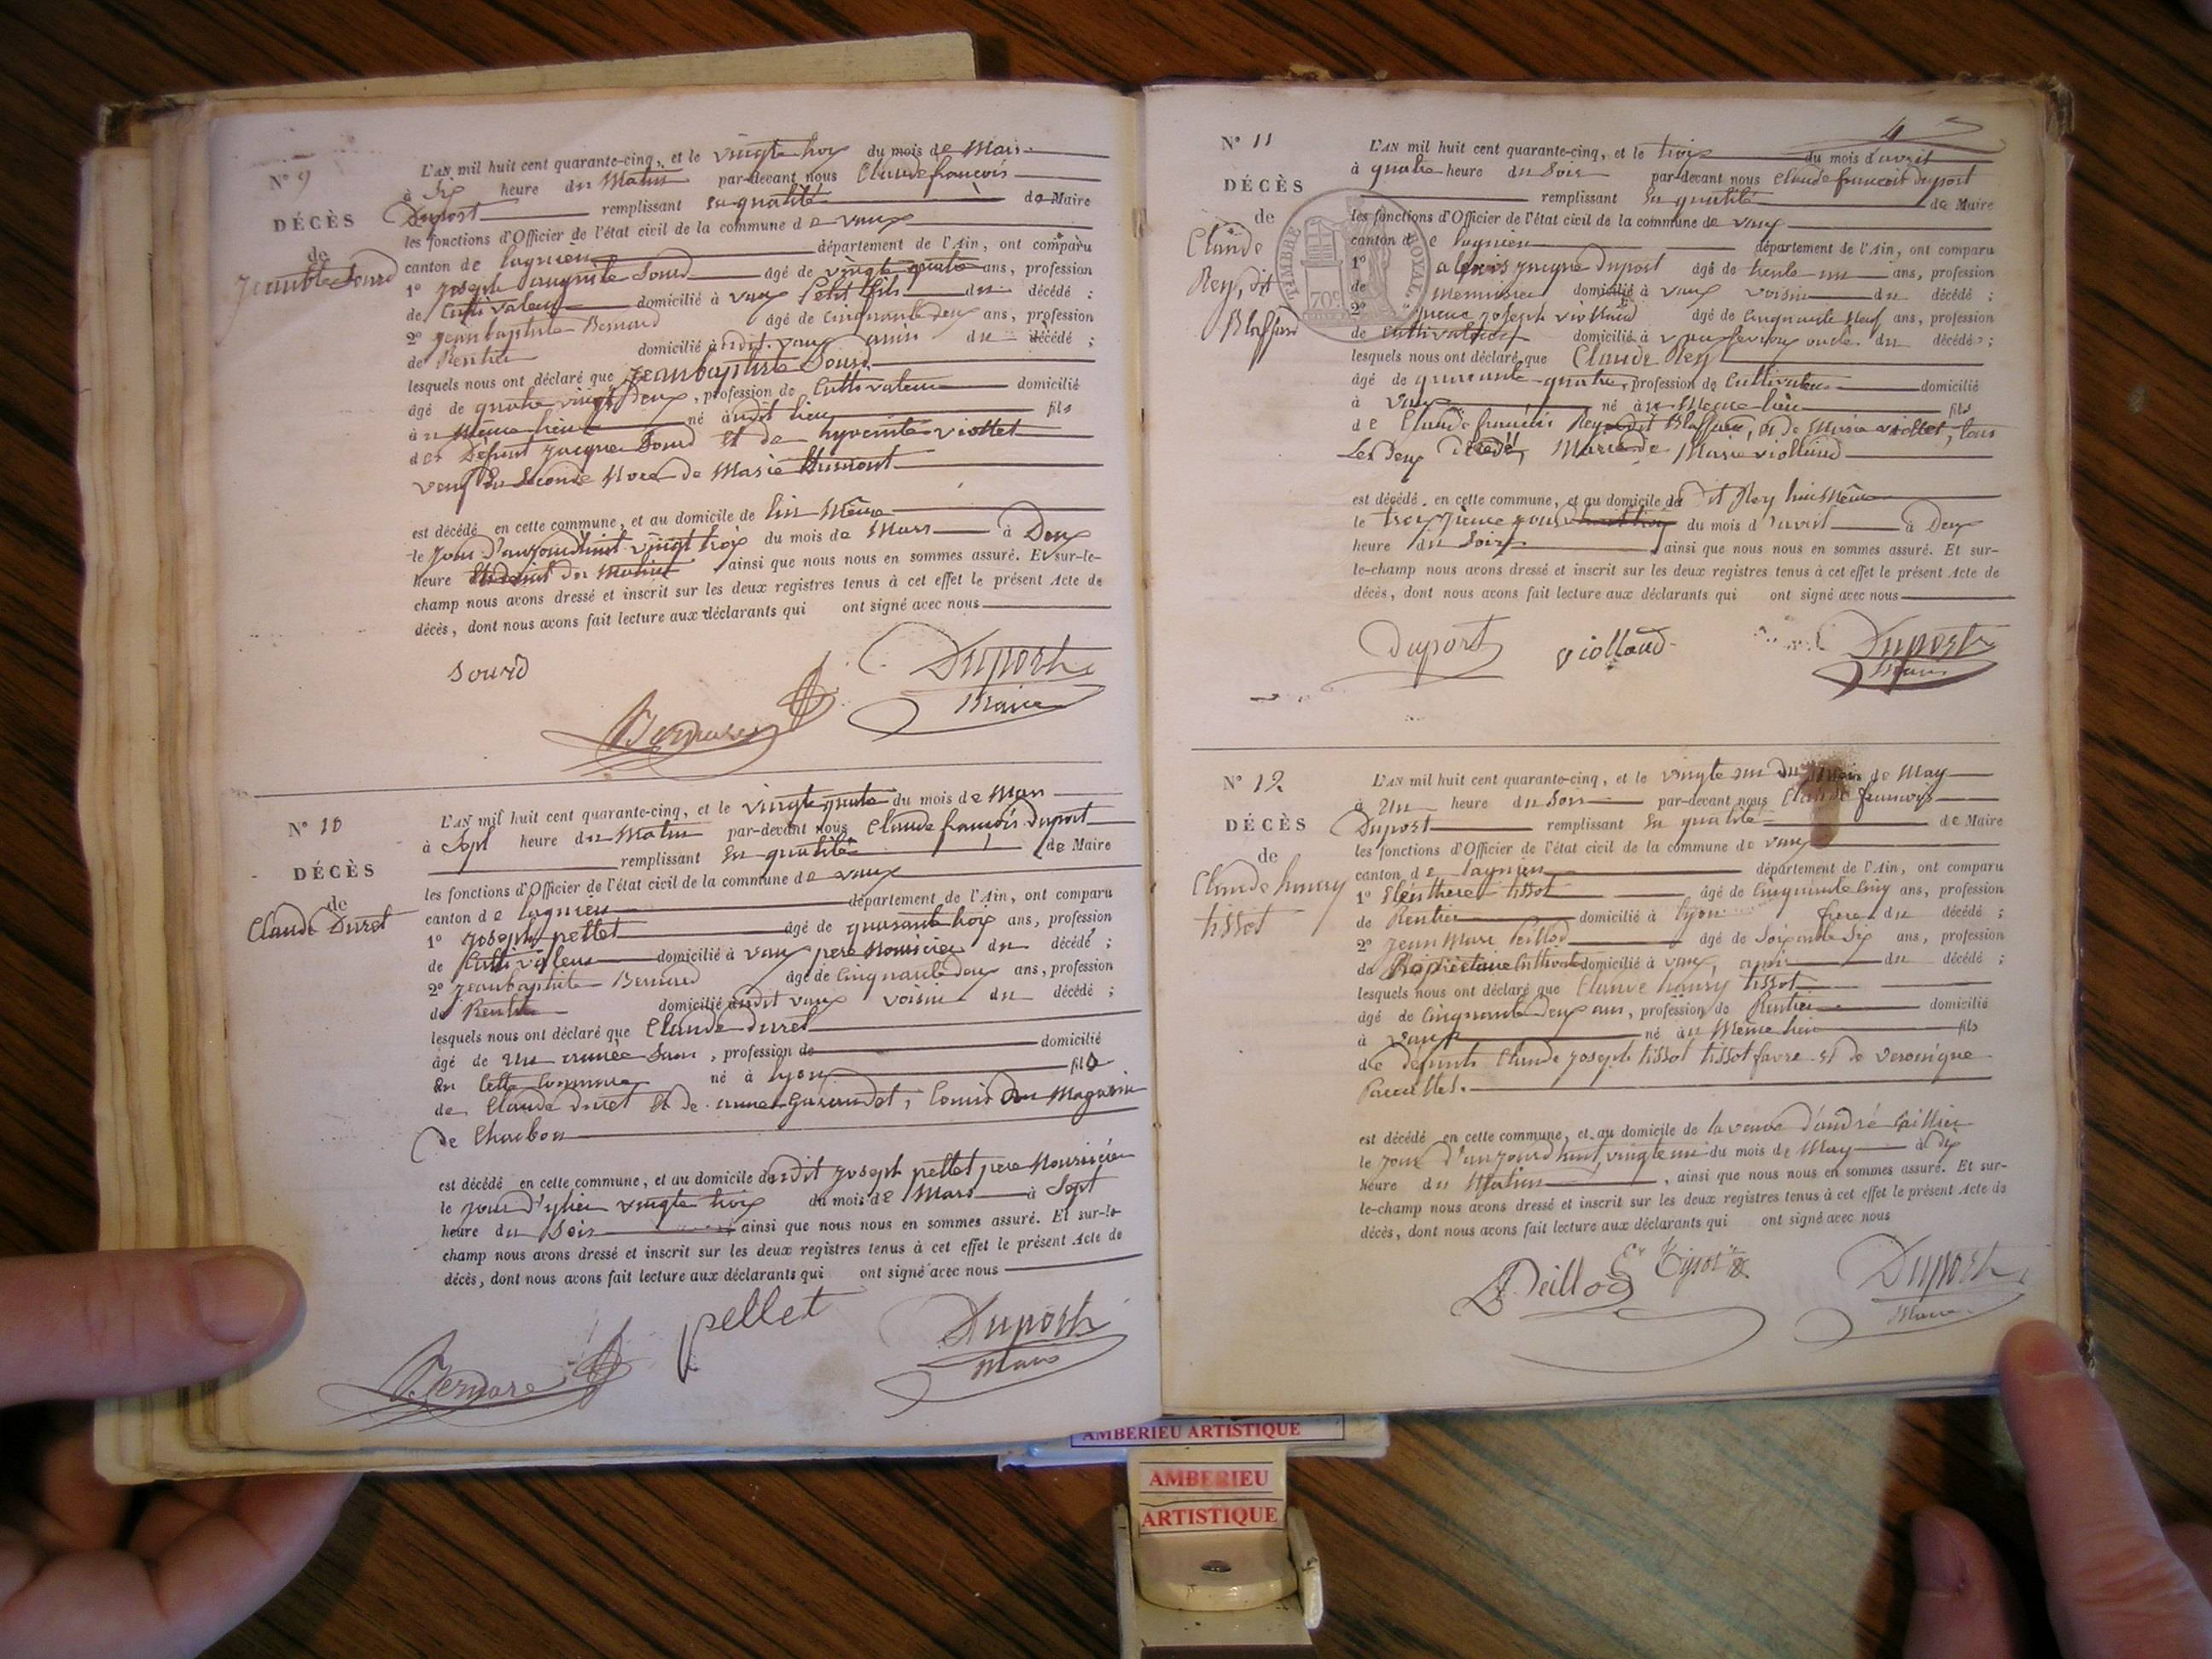 N° 9
DÉCÈS
de
L'AN mil huit cent quarante-cinq, et le vingt trois du mois de Mars
à Six heure du Matin par-devant nous Claude françois
Duport remplissant En qualité de Maire
les fonctions d'Officier de l'état civil de la commune de vaux
canton de lagnieu département de l'Ain, ont comparu
1° joseph Sourd âgé de vingt quatre ans, profession
de Cultivateur domicilié à vaux petit fils du décédé ;
2° jeanbaptiste Bernard âgé de Cinquante deux ans, profession
de Rentier domicilié à udit vaux amis du décédé ;
lesquels nous ont déclaré que jeanbaptiste Sourd
âgé de quatre vingt Deux, profession de Cultivateur domicilié
au Même lieu né audit lieu fils
des Défunt jacque Sourd Et de hyacinte viollet
veuf En Seconde Noce de Marie
est décédé en cette commune, et au domicile de lui Même
le jour d'aujourd'huit vingt trois du mois de Mars à Deux
heure du Matin ainsi que nous nous en sommes assuré. Et sur-le-
champ nous avons dressé et inscrit sur les deux registres tenus à cet effet le présent Acte de
décès, dont nous avons fait lecture aux déclarants qui ont signé avec nous
Sourd
Bernard
Duport
Maire
N° 10
DÉCÈS
de
Claude Duret
L'AN mil huit cent quarante-cinq, et le vingt quatre du mois de Mars
à Sept heure du Matin par-devant nous Claude françois duport
remplissant En qualité de Maire
les fonctions d'Officier de l'état civil de la commune de vaux
canton de lagnieu département de l'Ain, ont comparu
1° joseph pellet âgé de quarante trois ans, profession
de Cultivateur domicilié à vaux pere Nouricier du décédé ;
2° jeanbaptiste Bernard âgé de Cinquante deux ans, profession
de Rentier domicilié audit vaux voisin du décédé ;
lesquels nous ont déclaré que Claude duret
âgé de une année , profession de domicilié
en Cette Commune né à lyon fils
de Claude duret Et de anne , Comis Magasin
de Charbon
est décédé en cette commune, et au domicile dudit joseph pellet pere Nouricier
le jour d'hier vingt trois du mois de Mars à Sept
heure du Soir ainsi que nous nous en sommes assuré. Et sur-le-
champ nous avons dressé et inscrit sur les deux registres tenus à cet effet le présent Acte de
décès, dont nous avons fait lecture aux déclarants qui ont signé avec nous
Bernard
pellet
Duport
Maire
4
N° 11
DÉCÈS
de
Claude
Rey, dit
TIMBRE ROYAL
70c
L'AN mil huit cent quarante-cinq, et le trois du mois d'avril
à quatre heure du Soir par-devant nous Claude francois duport
remplissant En qualité de Maire
les fonctions d'Officier de l'état civil de la commune de vaux
canton de lagnieu département de l'Ain, ont comparu
1° alexis jacque duport âgé de trente un ans, profession
de Menuisier domicilié à vaux voisin du décédé ;
2° joseph viollaud âgé de Cinquante Neuf ans, profession
de Cultivateur domicilié à vaux oncle du décédé ;
lesquels nous ont déclaré que Claude Rey
âgé de quarante-quatre, profession de Cultivateur domicilié
à vaux né au Meme lieu fils
de Claude francois Rey dit , et de Marie viollet, tous
Les Deux Décédé, Marié de Marie viollaud
est décédé en cette commune, et au domicile du dit Rey lui Même
le du mois d'avril à Deux
heure du Soir ainsi que nous nous en sommes assuré. Et sur-
le-champ nous avons dressé et inscrit sur les deux registres tenus à cet effet le présent Acte de
décès, dont nous avons fait lecture aux déclarants qui ont signé avec nous
Duport
viollaud
Duport
Maire
N° 12
DÉCÈS
de
Claude haury
tissot
L'AN mil huit cent quarante-cinq, et le vingt un du mois de May
à Un heure du Soir par-devant nous Claude francois
Duport remplissant En qualité de Maire
les fonctions d'Officier de l'état civil de la commune de vaux
canton de lagnieu département de l'Ain, ont comparu
1° Eleuthere tissot âgé de Cinquante Cinq ans, profession
de Rentier domicilié à lyon frere du décédé ;
2° jean Marc Peillod âgé de Soixante Six ans, profession
de Propriétaire Cultivateur domicilié à vaux, ami du décédé ;
lesquels nous ont déclaré que Claude haury tissot
âgé de Cinquante Deux ans, profession de Rentier domicilié
à vaux né au Même lieu fils
de defunts Claude joseph tissot tissot favre Et de veronique
est décédé en cette commune, et au domicile de la veuve d'andré
le jour d'aujourd'huit, vingt un du mois de May à dix
heure du Matin , ainsi que nous nous en sommes assuré. Et sur-
le-champ nous avons dressé et inscrit sur les deux registres tenus à cet effet le présent Acte de
décès, dont nous avons fait lecture aux déclarants qui ont signé avec nous
Peillod
Duport
Maire
AMBERIEU ARTISTIQUE
AMBERIEU
ARTISTIQUE